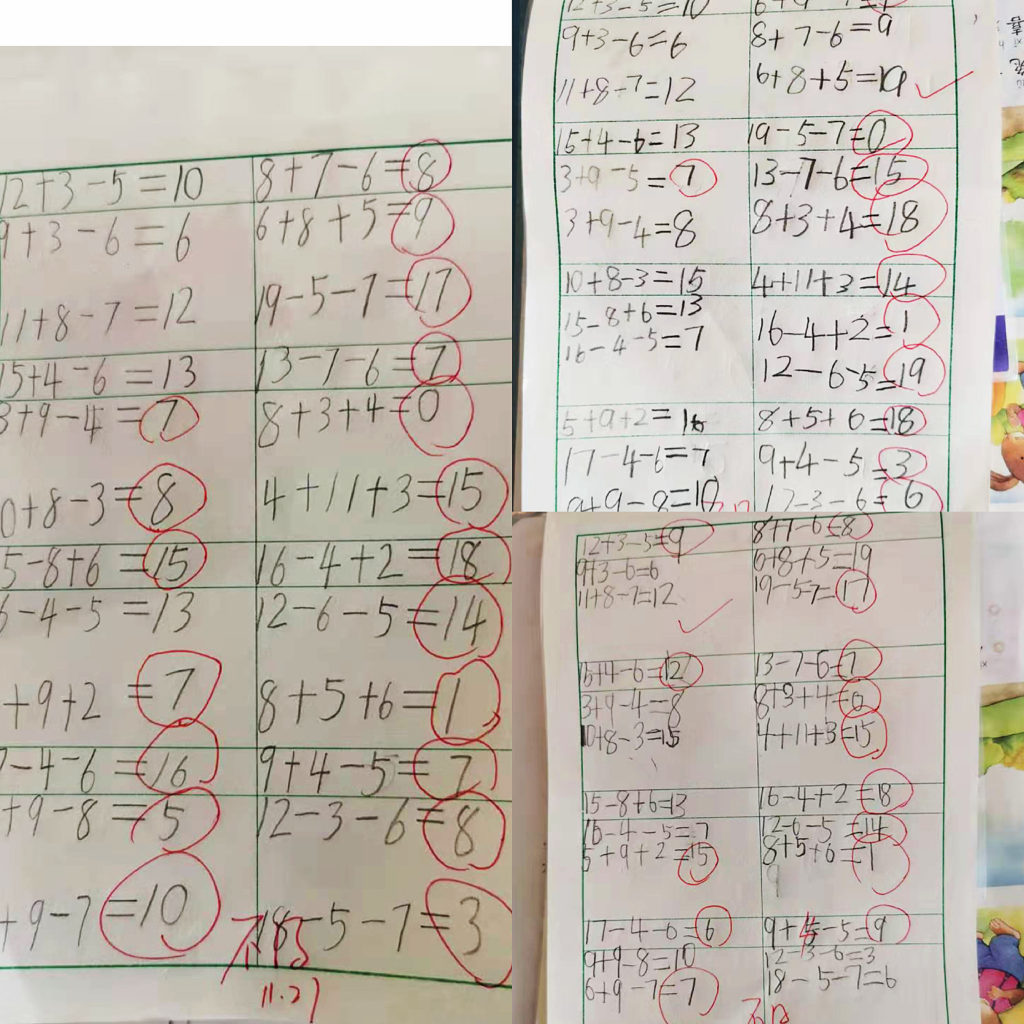 12+3-5=10
8+7-6=8
9+3-6=6
6+8+5=9
11+8-7=12
19-5-7=17
15+4-6=13
13-7-6=7
3+9-4=7
8+3+4=0
0+8-3=8
4+11+3=15
5-8+6=15
16-4+2=18
6-4-5=13
12-6-5=14
+9+2=7
8+5+6=1
7-4-6=16
9+4-5=7
+9-8=5
12-3-6=8
+9-7=10
18-5-7=3
11.27
12+3-5=10
9+3-6=6
8+7-6=9
11+8-7=12
6+8+5=19
15+4-6=13
19-5-7=0
3+9-5=7
13-7-6=15
3+9-4=8
8+3+4=18
10+8-3=15
4+11+3=14
15-8+6=13
16-4+2=1
16-4-5=7
12-6-5=19
5+9+2=16
8+5+6=18
17-4-6=7
9+4-5=3
9+9-8=10
12-3-6=6
12+3-5=9
8+7-6=8
9+3-6=6
6+8+5=19
11+8-7=12
19-5-7=17
15+4-6=12
13-7-6=7
3+9-4=8
8+3+4=0
10+8-3=15
4+11+3=15
15-8+6=13
16-4+2=18
16-4-5=7
12-6-5=14
5+9+2=15
8+5+6=1
9
17-4-6=6
9+4-5=9
9+9-8=10
12-3-6=3
6+9-7=7
18-5-7=6